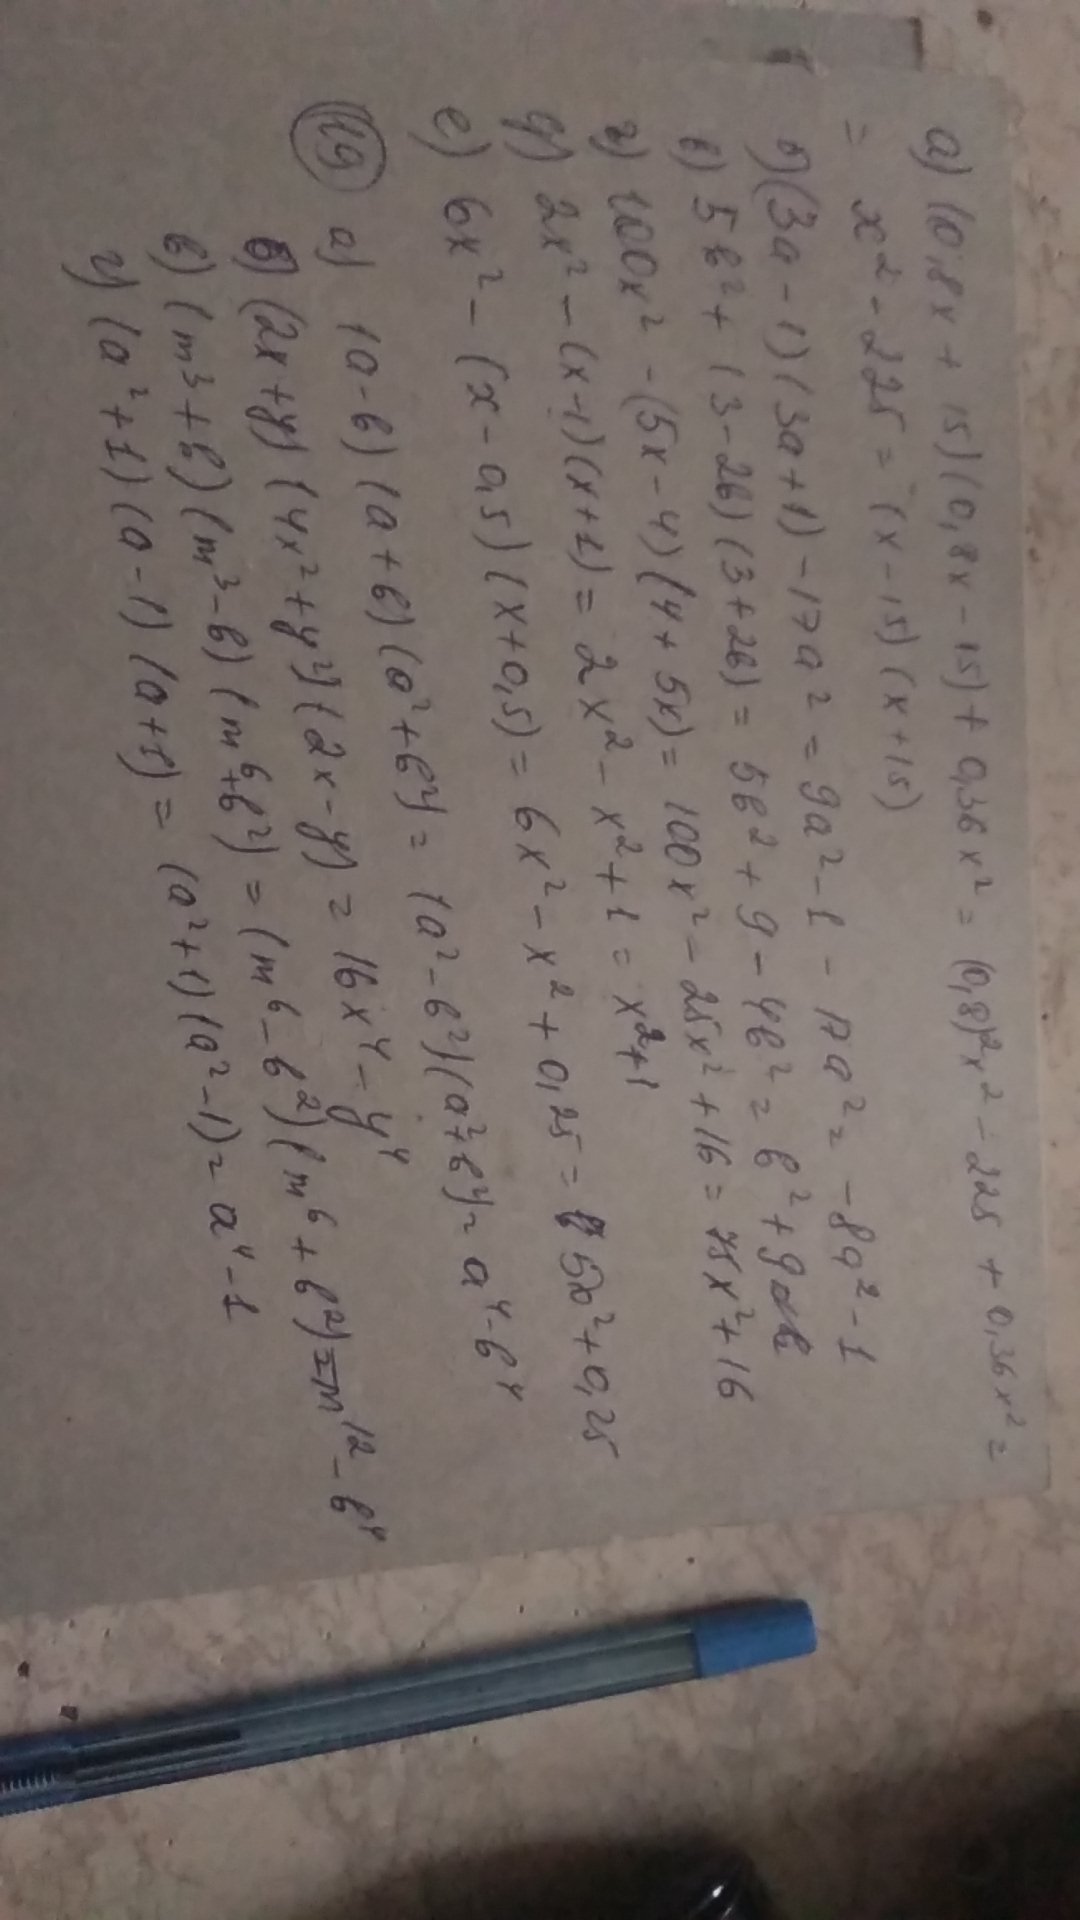 а) (0,8x + 15)(0,8x - 15) + 0,36x² = (0,8)²x² - 225 + 0,36x² =
= x² - 225 = (x - 15)(x + 15)
б) (3a - 1)(3a + 1) - 17a² = 9a² - 1 - 17a² = -8a² - 1
в) 5b² + (3 - 2b)(3 + 2b) = 5b² + 9 - 4b² = b² + 9
г) 100x² - (5x - 4)(4 + 5x) = 100x² - 25x² + 16 = 75x² + 16
д) 2x² - (x - 1)(x + 1) = 2x² - x² + 1 = x² + 1
е) 6x² - (x - 0,5)(x + 0,5) = 6x² - x² + 0,25 = 5x² + 0,25
а) (a - b)(a + b)(a² + b²) = (a² - b²)(a² + b²) = a⁴ - b⁴
б) (2x + y)(4x² + y²)(2x - y) = 16x⁴ - y⁴
в) (m³ + b)(m³ - b)(m⁶ + b²) = (m⁶ - b²)(m⁶ + b²) = m¹² - b⁴
г) (a² + 1)(a - 1)(a + 1) = (a² + 1)(a² - 1) = a⁴ - 1